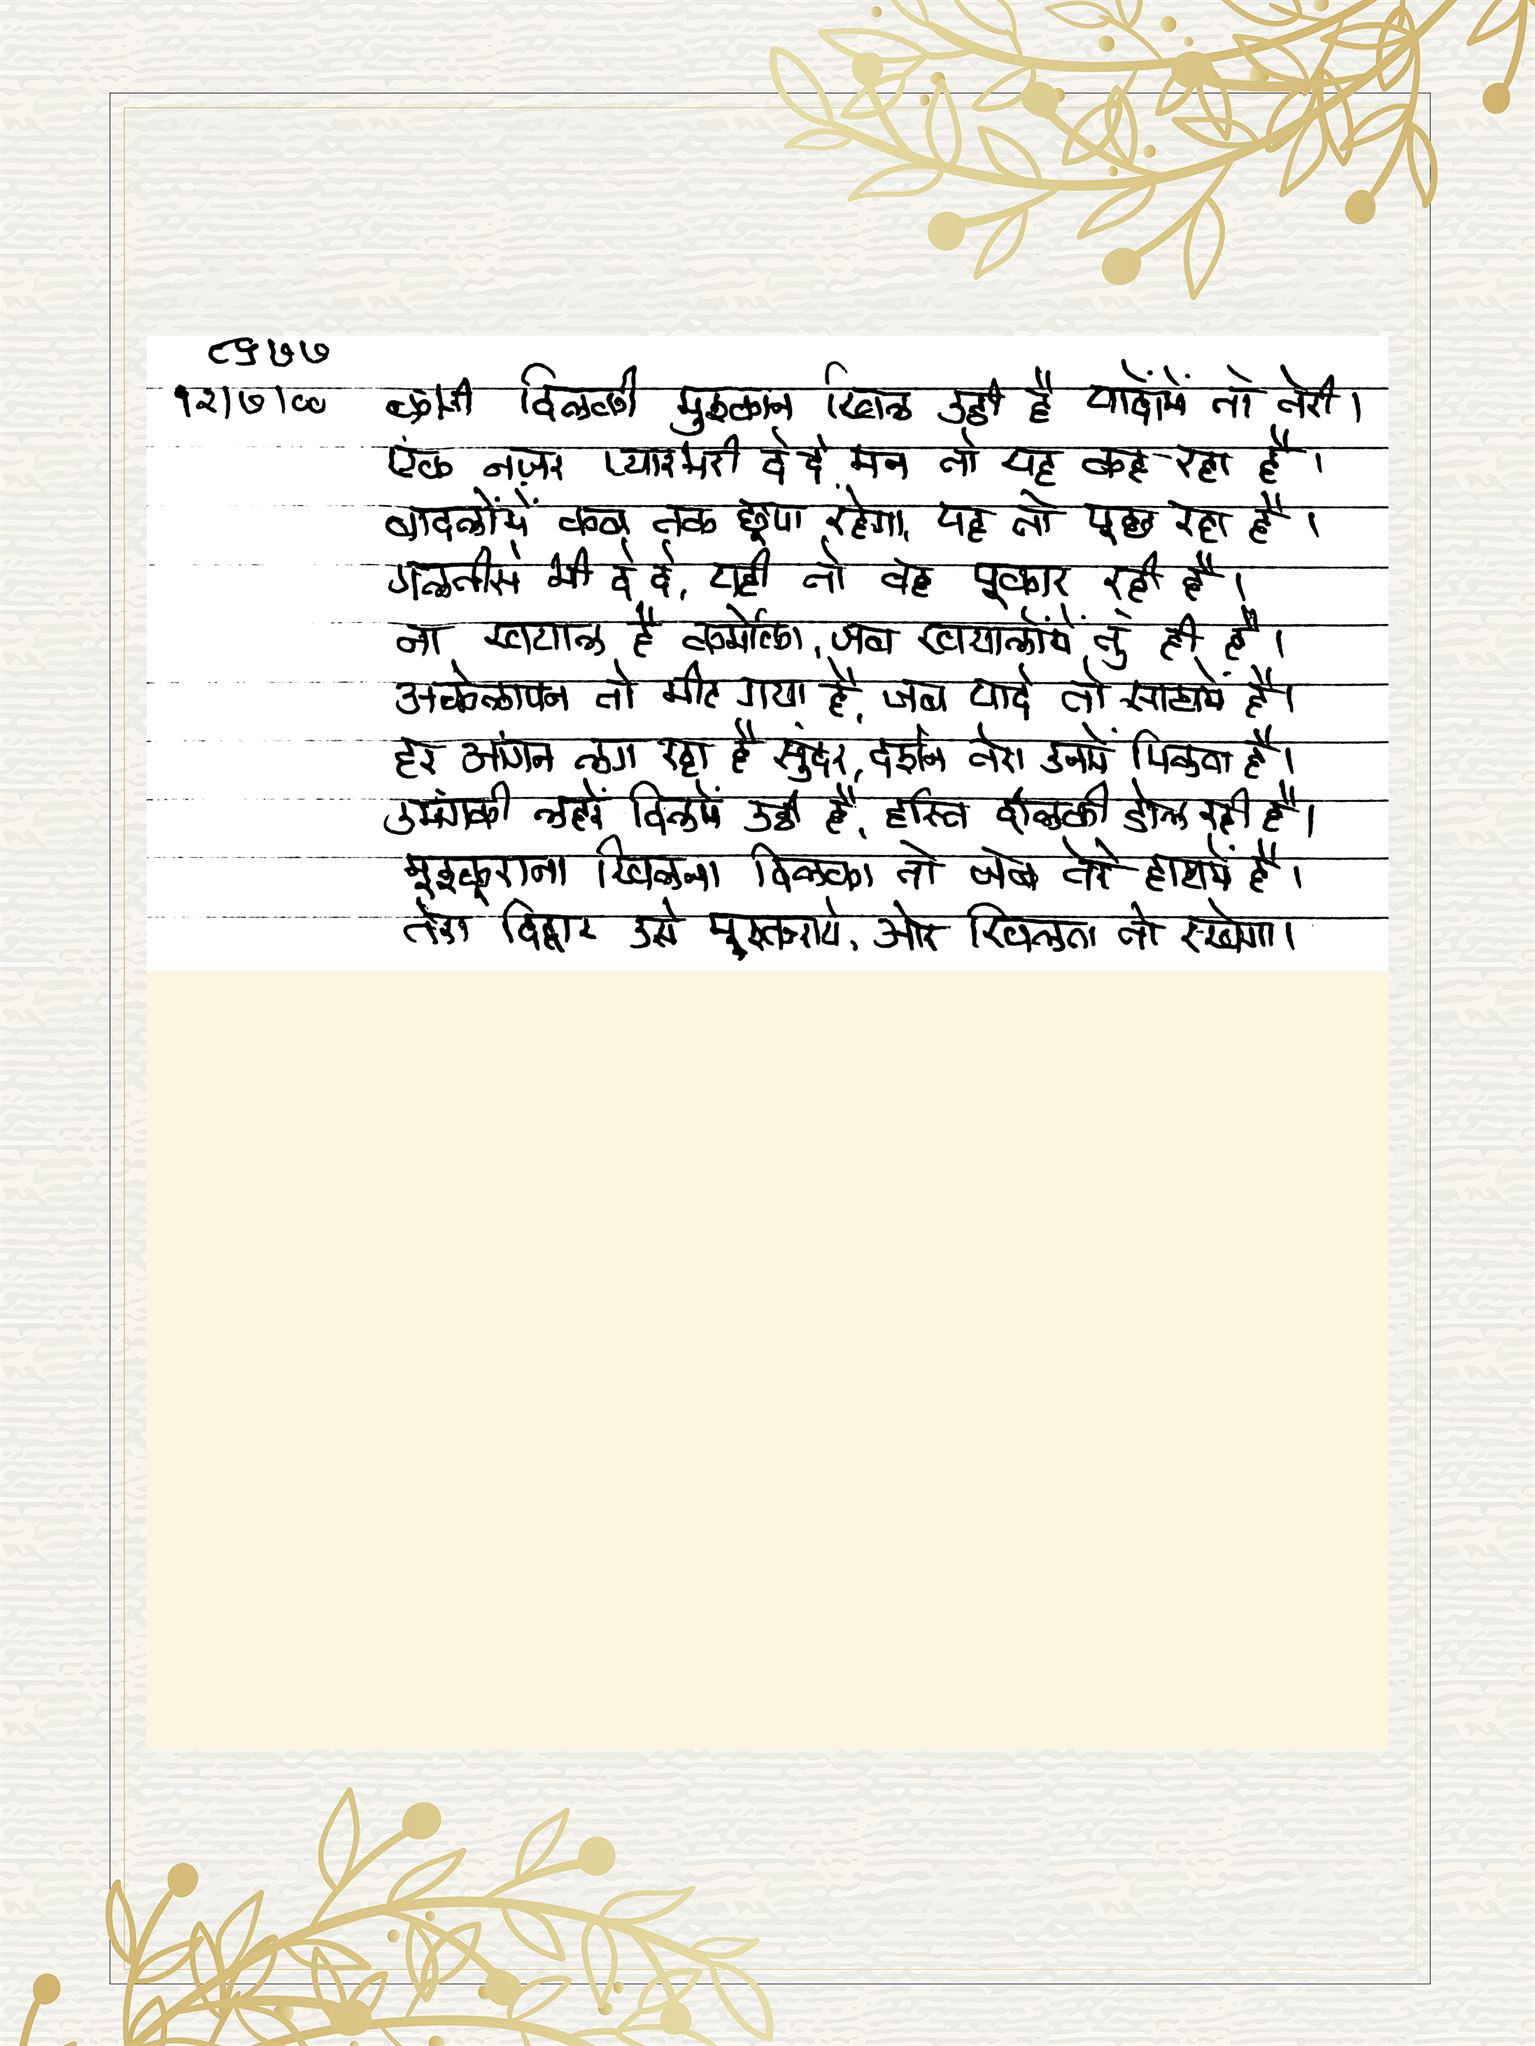 ८५७७
१२/७/०० काजी दिलकी मुश्कान खिल उठी है यादोंमें तो तेरी।
एक नज़र प्यारभरी दे दे, मन तो यह कह रहा है।
बादलोंमें कब तक छूपा रहेगा, यह तो पूछ रहा है।
गलतीसे भी दे दे, यही तो वह पूकार रही है।
ना खयाल है कर्मोका, जब खयालोंमें तुं ही है।
अकेलापन तो मीट गया है, जब यादे तो साथमें है।
हर आंगन लग रहा है सुंदर, दर्शन तेरा उनमें मिलता है।
उमंगकी लहरें दिलमें उठी है, हस्ति दीलकी डोल रही है।
मूश्कूराना खिलना दिलका तो जब तेरे हाथमें है।
तेरा दिद्वार उसे मूस्कूराये, और खिलता तो रखेगा।